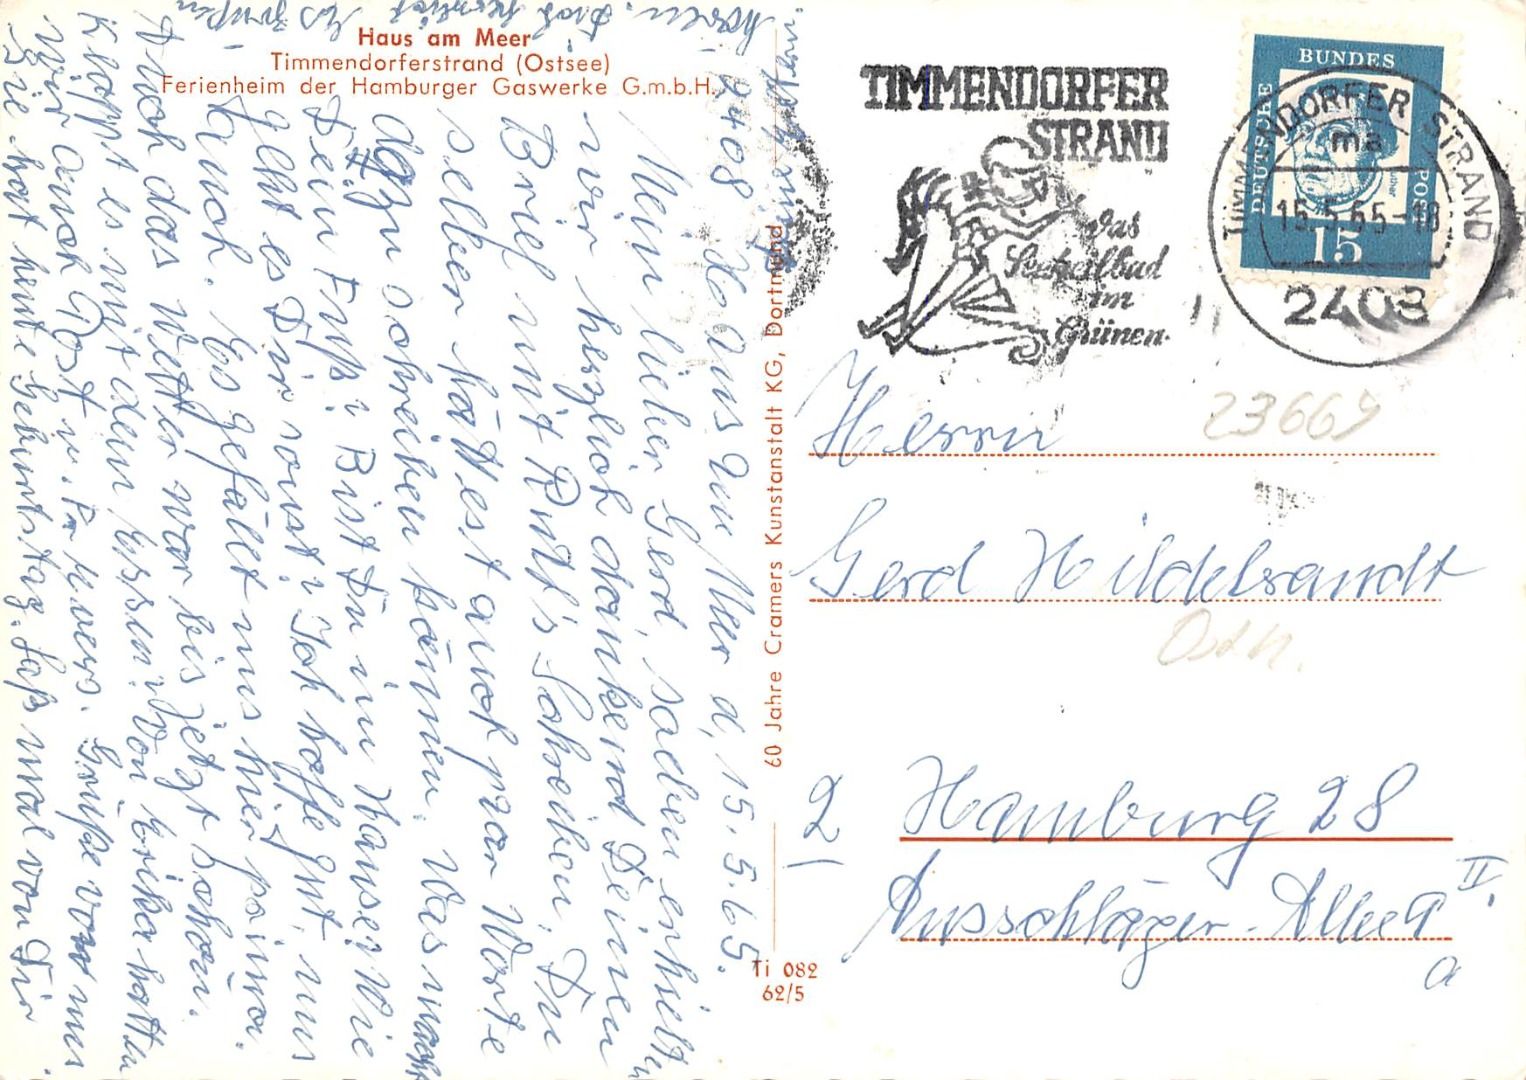 Haus am Meer
Timmendorferstrand (Ostsee)
Ferienheim der Hamburger Gaswerke G.m.b.H.
2408 Haus am Meer d, 15.5.65.
Mein lieber Gerd, soeben erhielten
wir herzlich dankend Deinen
Brief mit Ruth's Schreiben, Du
selber hättest auch paar Worte
dazu schreiben können. Was macht
Dein Fuß? Bist Du im Hause? Wie
geht es Dir sonst? Ich hoffe gut, uns
auch. Es gefällt uns hier prima.
Auch das Wetter war bis jetzt schön.
Klappt es mit dem Essen? Von Erika hatten
wir auch Post u. Grüße von uns
Sie hat heute Geburtstag. Laß mal von Dir
hören. Es grüßen
60 Jahre Cramers Kunstanstalt KG, Dortmund
Ti 082
62/5
TIMMENDORFER
STRAND
das
Seeheilbad
im
Grünen.
DEUTSCHE BUNDESPOST
Luther
15
TIMMENDORFER STRAND
ma
15.5.65-18
2408
23669
Herrn
Gerd Hildebrandt
Osth.
2 Hamburg 28
Ausschläger-Allee 9 II.
a